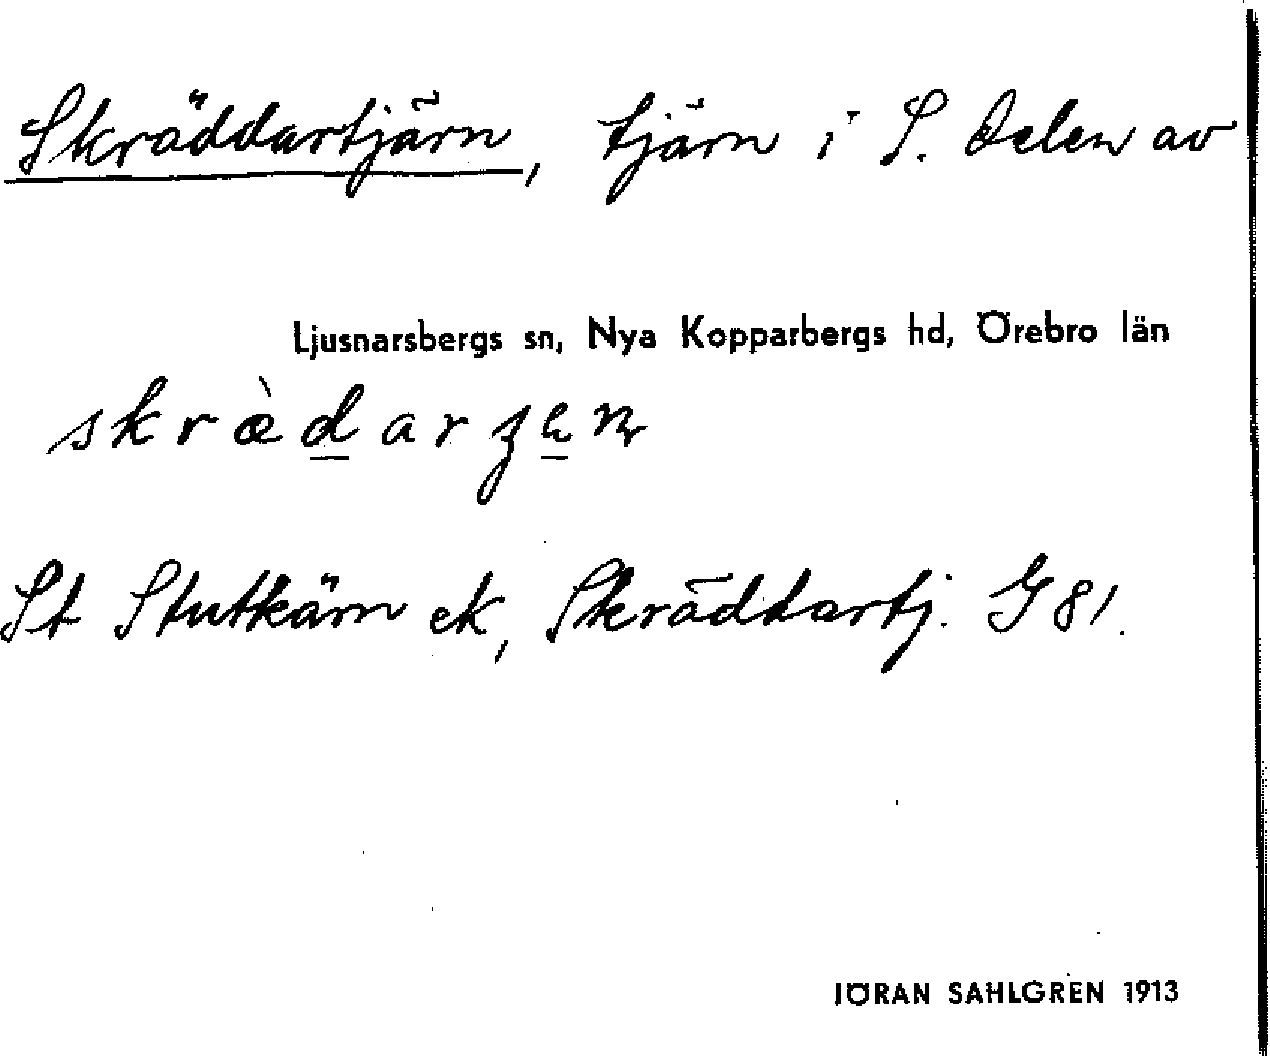 Skräddartjärn, tjärn i S. delen av
Ljusnarsbergs sn, Nya Kopparbergs hd, Örebro län
skræ̀d̲arʒe̲n
St Stutkärn ek, Skräddartj. G 81.
JÖRAN SAHLGREN 1913